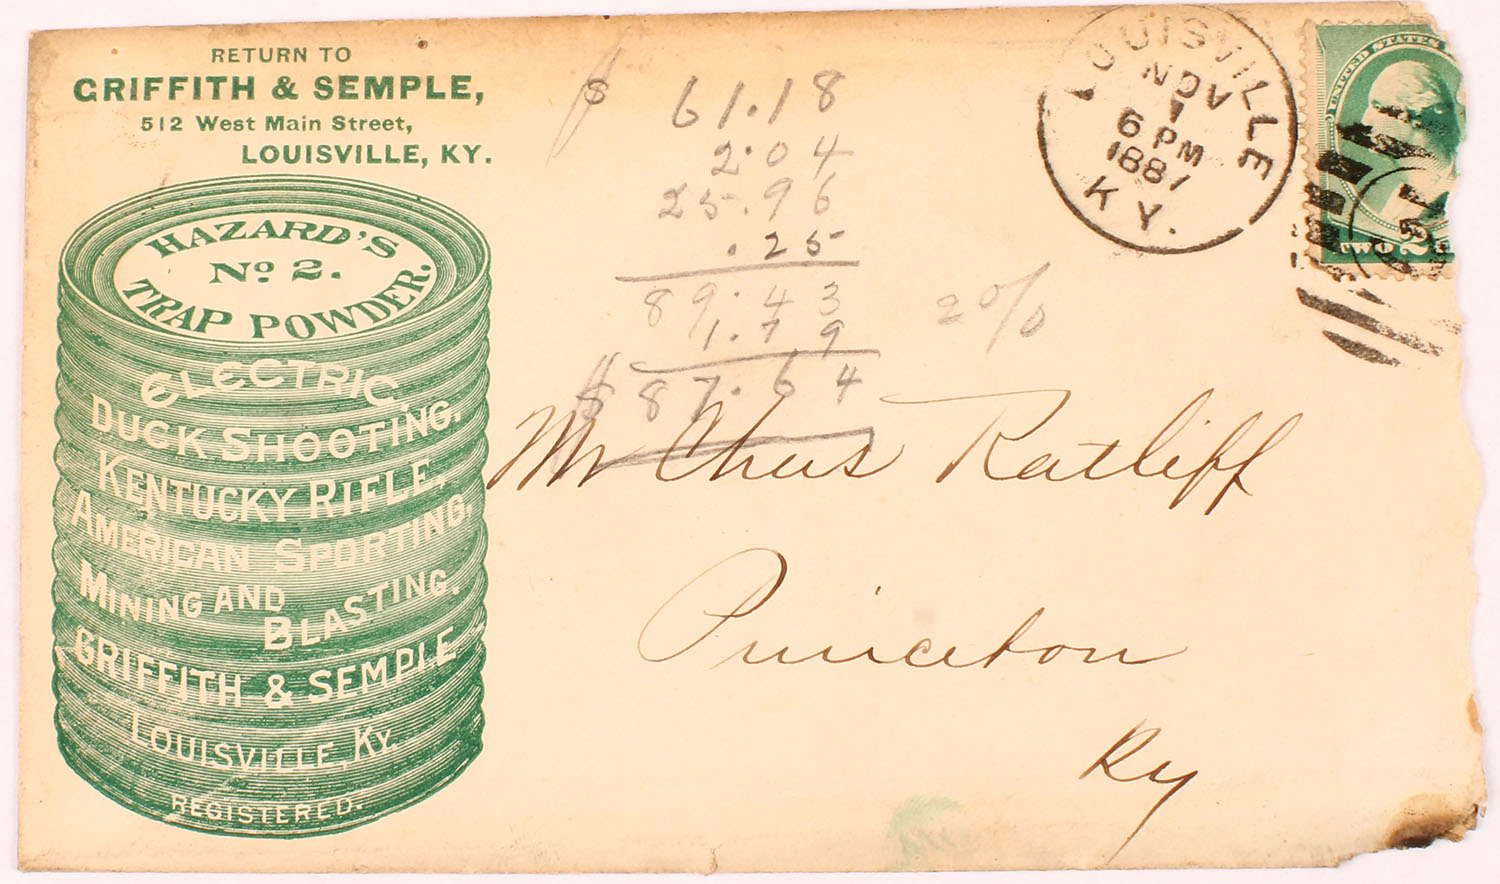 RETURN TO
GRIFFITH & SEMPLE,
512 West Main Street,
LOUISVILLE, KY.
HAZARD'S
No. 2.
TRAP POWDER.
ELECTRIC.
DUCK SHOOTING.
KENTUCKY RIFLE.
AMERICAN SPORTING.
MINING AND
BLASTING.
GRIFFITH & SEMPLE
LOUISVILLE, KY.
REGISTERED.
$ 61.18
2.04
25.96
.25
89.43
1.79 2%
$ 87.64
LOUISVILLE
NOV
1
6 PM
1887
KY.
UNITED STATES
TWO 2
Mr Chas Ratliff
Princeton
Ky